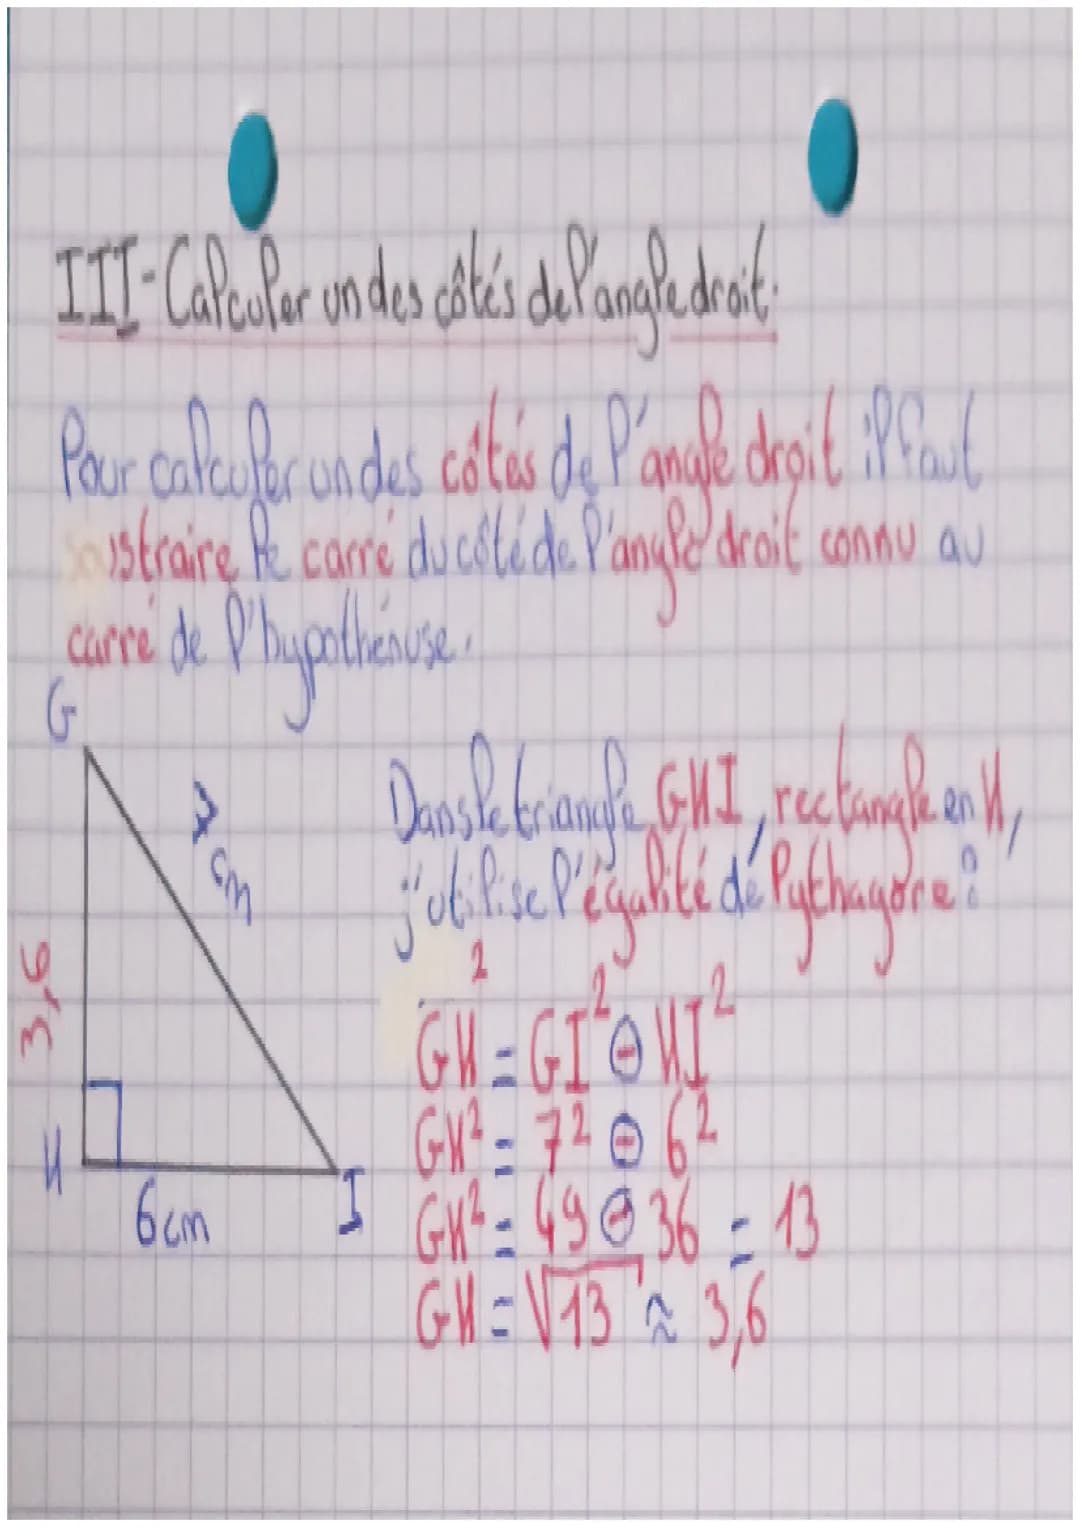 III-Calculer un des côtés de l'angle droit.
Pour calculer un des côtés de l'angle droit il faut
soustraire le carré du côté de l'angle droit connu au
carré de l'hypothénuse.
G
7 cm
3,6
H
6cm
I
Dans le triangle GHI, rectangle en H,
j'utilise l'égalité de Pythagore :
GH² = GI² - HI²
GH² = 7² - 6²
GH² = 49 - 36 = 13
GH = √13 ≈ 3,6